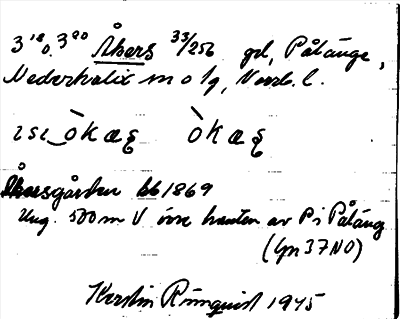 3¹⁸ o. 3²⁰ Åkers 33/256 gd, Påläng,
Nederkalix m o lg, Norrb. l.
ısı‿òkæʂ òkæʂ
Åkersgården bb 1869
Ung. 500 m V övre kanten av P i Påläng
(Gn 37 NO)
Kerstin Rönnquist 1945